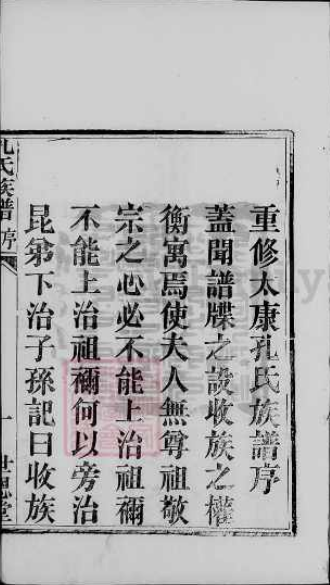 重修太康孔氏族譜序
蓋聞譜牒之設收族之權
衡寓焉使夫人無尊祖敬
宗之心必不能上治祖禰
不能上治祖禰何以旁治
昆弟下治子孫記曰收族
孔氏族譜 序 一 世恩堂